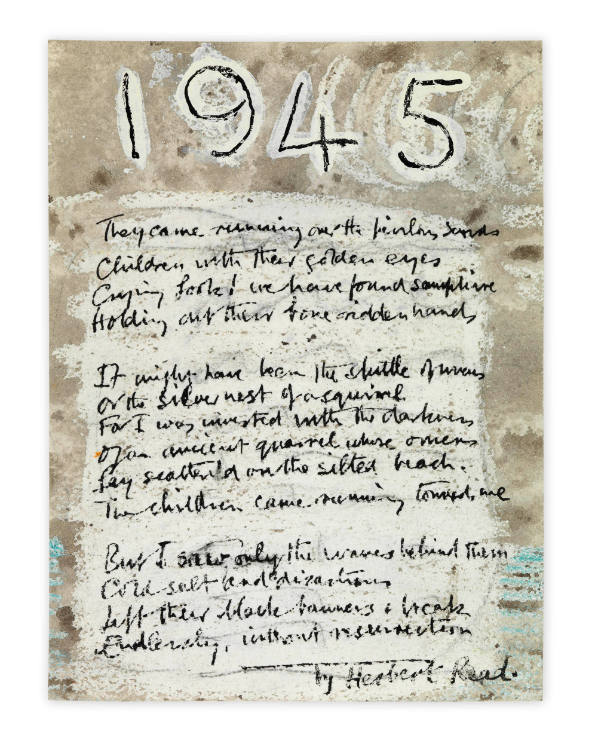 1945
They came running over the perilous sands
Children with their golden eyes
Crying Look! we have found samphire
Holding out their bone-ridden hands
It might have been the spittle of wrens
Or the silver nest of a squirrel
For I was invested with the darkness
Of an ancient quarrel whose omens
Lay scatter'd on the silted beach.
The children came running towards me
But I saw only the waves behind them
Cold salt and disastrous
Lift their black banners & break
Endlessly, without resurrection
by Herbert Read.